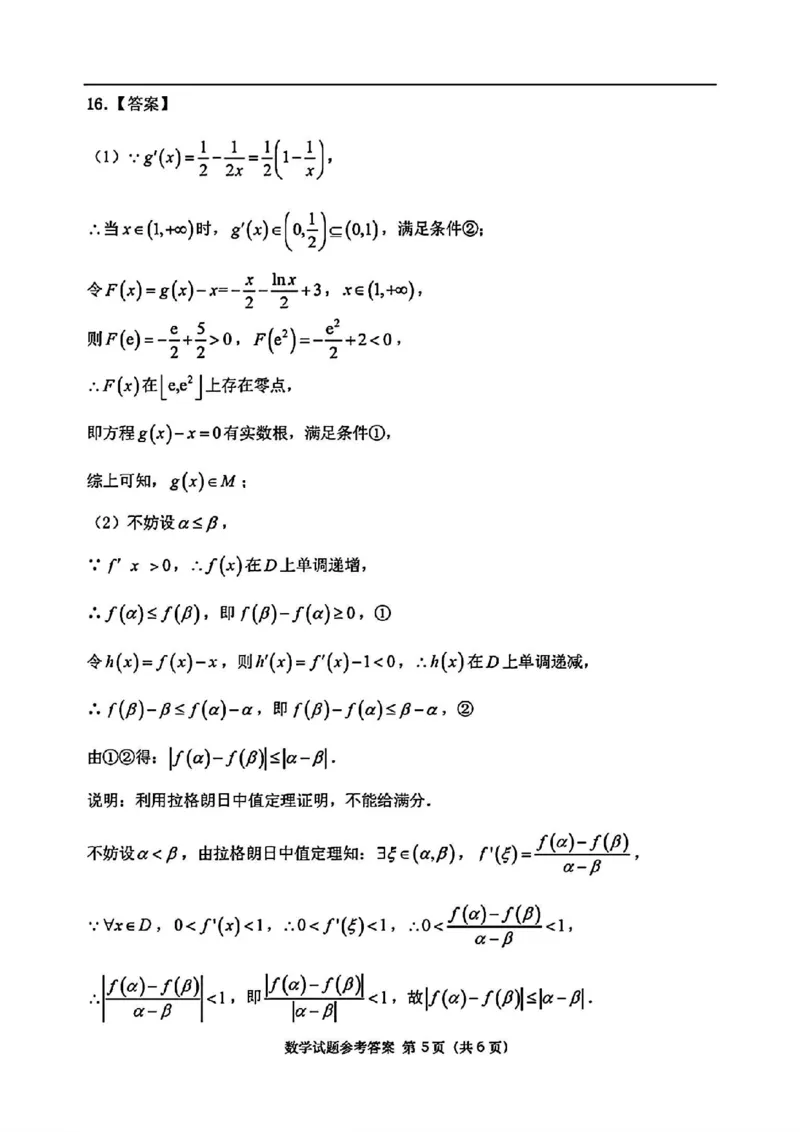 16.【答案】
（1）∵g′(x)=1/2-1/2x=1/2(1-1/x)，
∴当x∈(1,+∞)时，g′(x)∈(0,1/2)⊆(0,1)，满足条件②；
令F(x)=g(x)-x=-x/2-lnx/2+3，x∈(1,+∞)，
则F(e)=-e/2+5/2>0，F(e²)=-e²/2+2<0，
∴F(x)在⌊e,e²⌋上存在零点，
即方程g(x)-x=0有实数根，满足条件①，
综上可知，g(x)∈M；
（2）不妨设α≤β，
∵f′ x >0，∴f(x)在D上单调递增，
∴f(α)≤f(β)，即f(β)-f(α)≥0，①
令h(x)=f(x)-x，则h′(x)=f′(x)-1<0，∴h(x)在D上单调递减，
∴f(β)-β≤f(α)-α，即f(β)-f(α)≤β-α，②
由①②得：|f(α)-f(β)|≤|α-β|．
说明：利用拉格朗日中值定理证明，不能给满分．
不妨设α<β，由拉格朗日中值定理知：∃ξ∈(α,β)，f'(ξ)=(f(α)-f(β))/(α-β)，
∵∀x∈D，0<f'(x)<1，∴0<f'(ξ)<1，∴0<(f(α)-f(β))/(α-β)<1，
∴|(f(α)-f(β))/(α-β)|<1，即|f(α)-f(β)|/|α-β|<1，故|f(α)-f(β)|≤|α-β|．
数学试题参考答案 第5页（共6页）